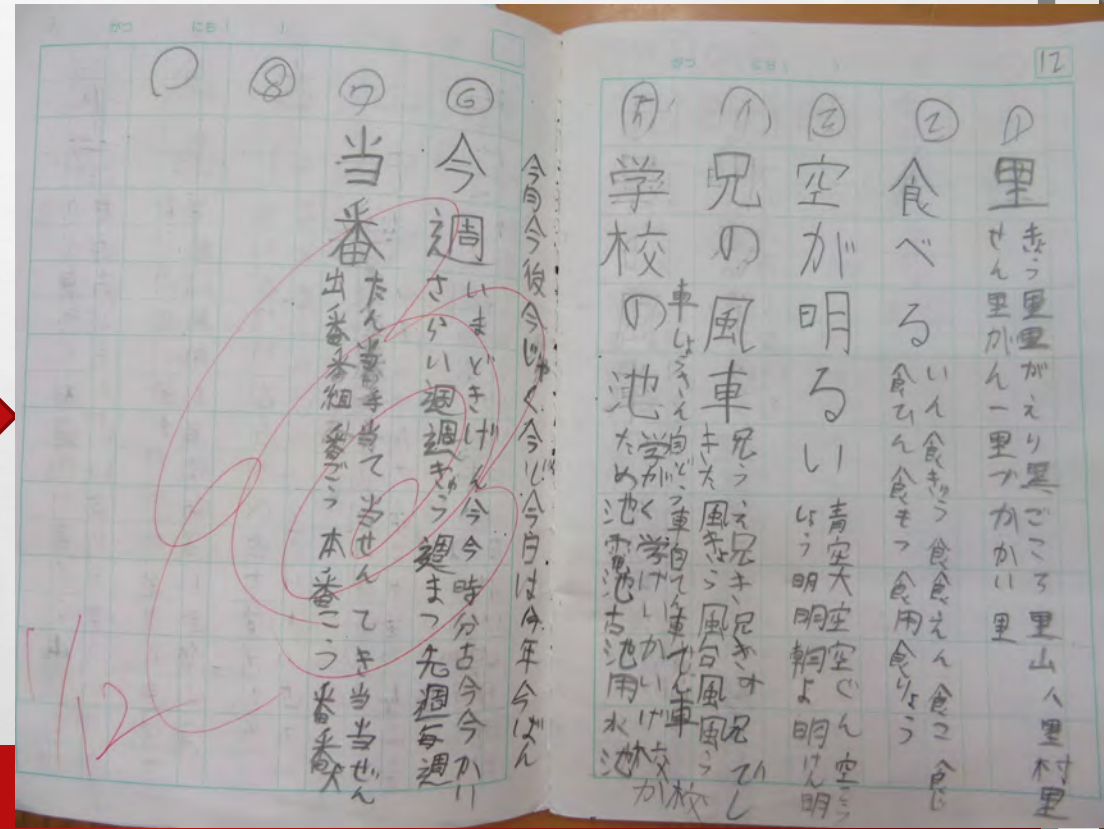 12
①
里
きょう里里がえり里ごころ里山人里村里
せん里がん一里づかかい里
②
食べる
いん食きゅう食食えん食こ食じ
食ひん食もつ食用食りょう
③
空が明るい
青空大空空ぐん空こう
しょう明明朝よ明けん明
④
兄の風車
兄
きた風きょう風台風風
⑤
学校の池
車しょうさん自どう車自てん車でん車
学がく学げいかいげ校か校
ため池電池古池用水池
⑥
今週
今旬今後今じゃく今じ今日は今年今ばん
いまどきげん今今時分古今今かい
えさらい週週きゅう週まつ先週毎週
⑦
当番
たん当手当て当せんてき当当ぜん
出番番組番ごう本番こう番番犬
⑧
11/12